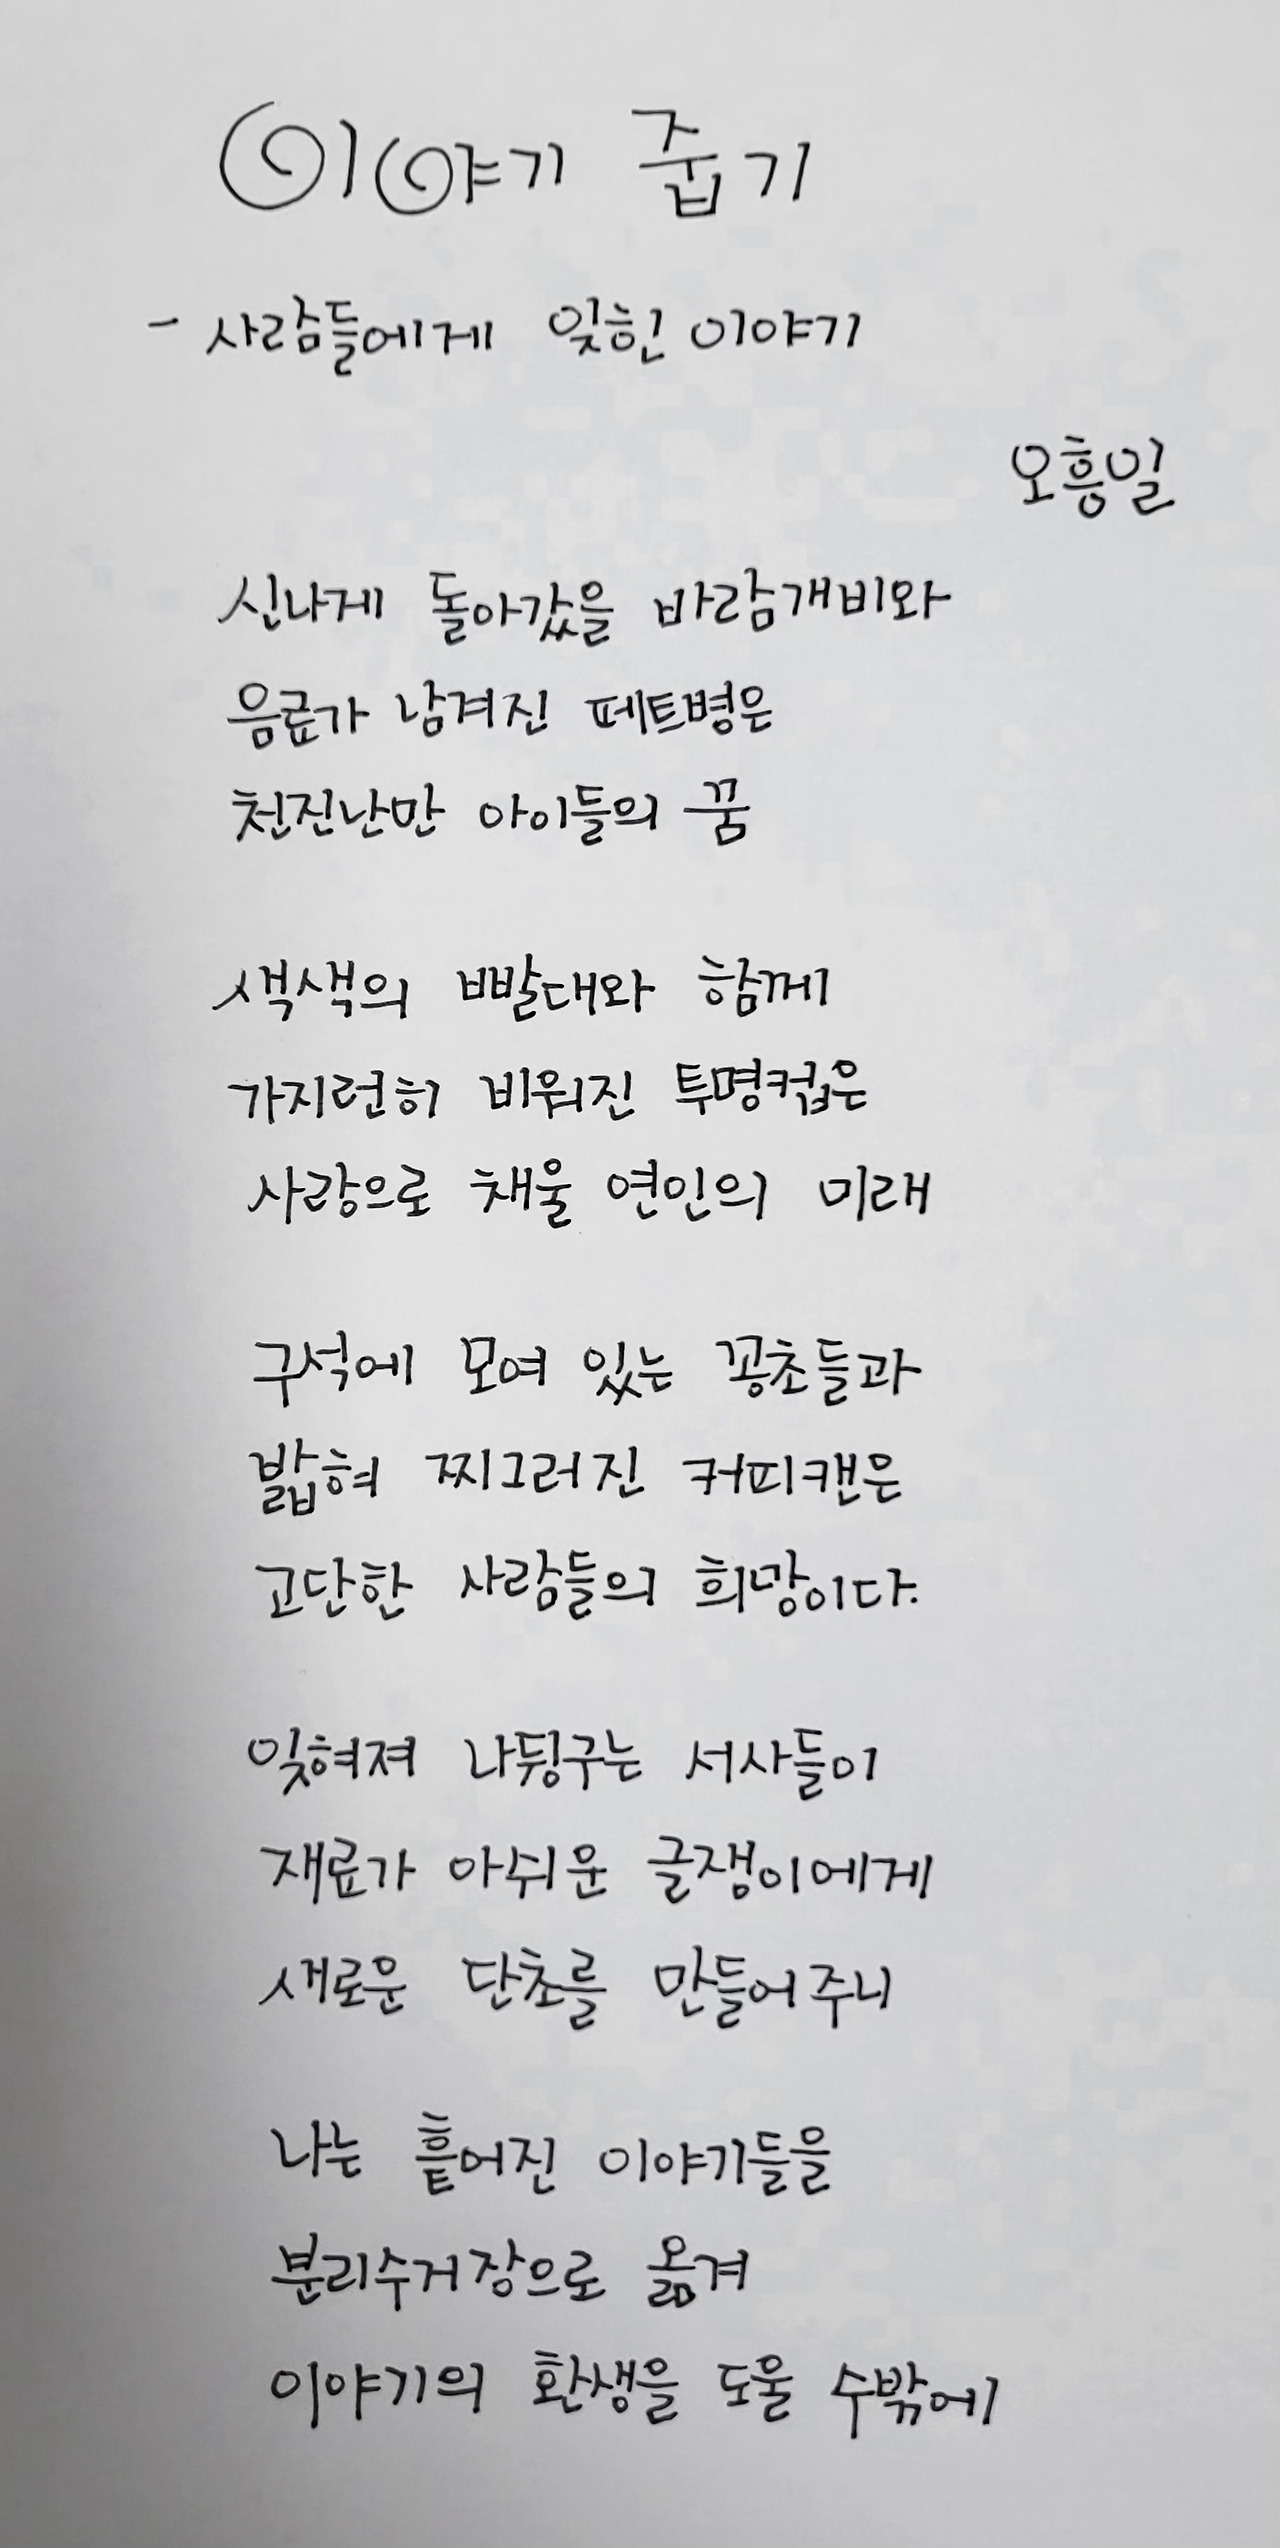 이야기 줍기
- 사람들에게 잊힌 이야기
오흥일
신나게 돌아갔을 바람개비와
음료가 남겨진 페트병은
천진난만 아이들의 꿈
색색의 빨대와 함께
가지런히 비워진 투명컵은
사랑으로 채울 연인의 미래
구석에 모여 있는 꽁초들과
밟혀 찌그러진 커피캔은
고단한 사람들의 희망이다.
잊혀져 나뒹구는 서사들이
재료가 아쉬운 글쟁이에게
새로운 단초를 만들어주니
나는 흩어진 이야기들을
분리수거장으로 옮겨
이야기의 환생을 도울 수밖에